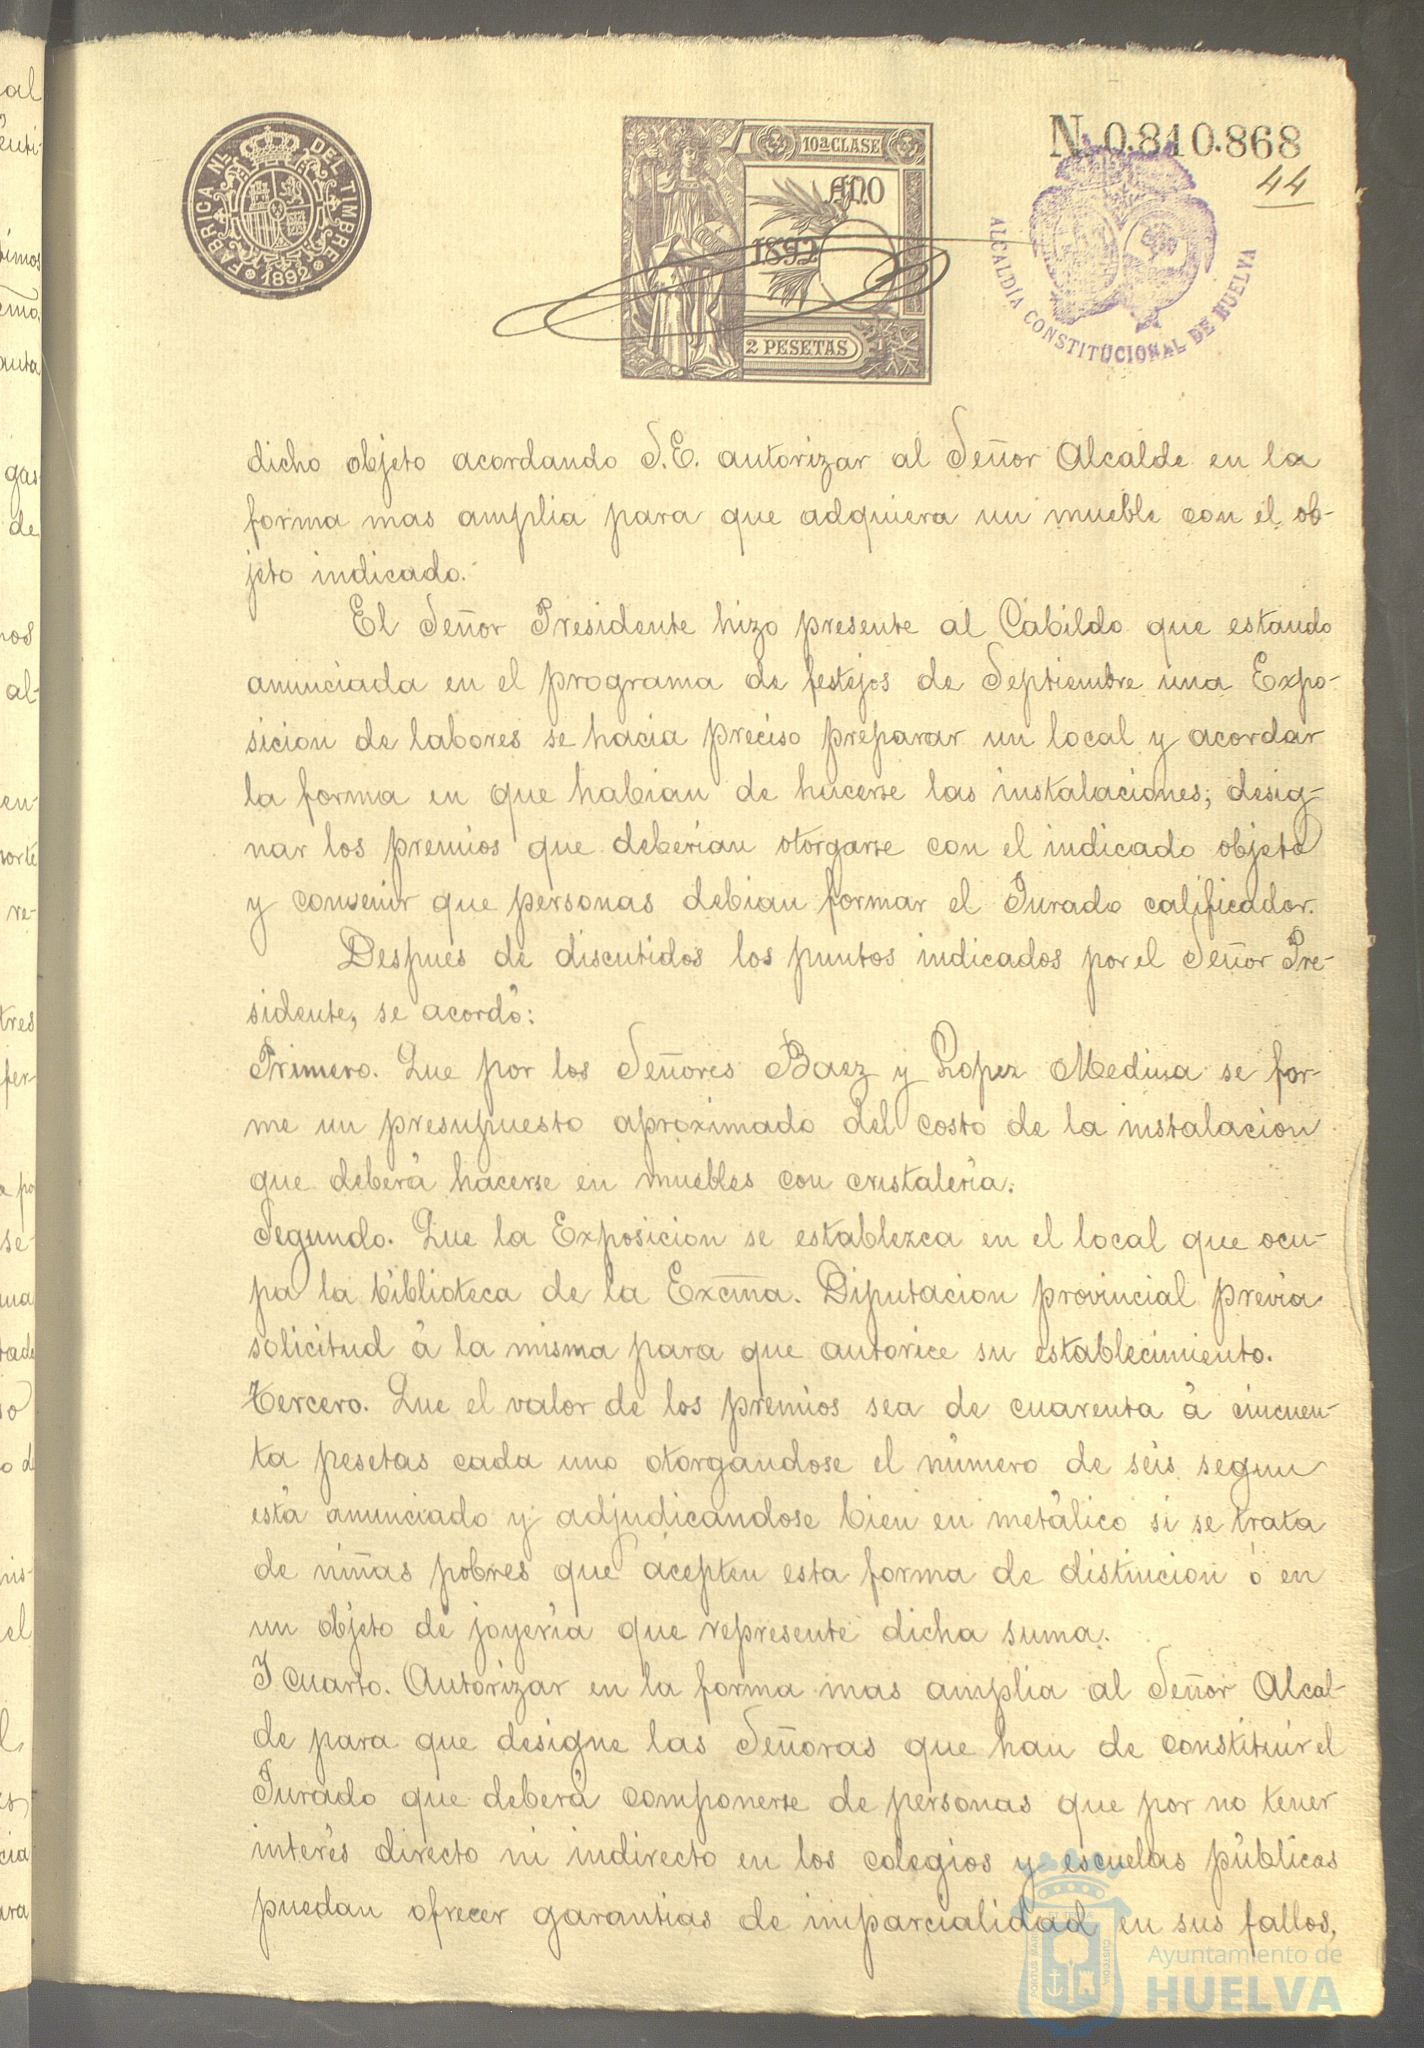 FABRICA Nal. DEL TIMBRE
1892
10ª CLASE
AÑO
1892
2 PESETAS
N. 0.810.868
44
ALCALDÍA CONSTITUCIONAL DE HUELVA
dicho objeto acordando S.E. autorizar al Señor Alcalde en la
forma mas amplia para que adquiera un mueble con el ob-
jeto indicado.
El Señor Presidente hizo presente al Cabildo que estando
anunciada en el programa de festejos de Septiembre una Expo-
sicion de labores se hacia preciso preparar un local y acordar
la forma en que habian de hacerse las instalaciones; desig-
nar los premios que deberian otorgarse con el indicado objeto
y convenir que personas debian formar el Jurado calificador.
Despues de discutidos los puntos indicados por el Señor Pre-
sidente, se acordó:
Primero. Que por los Señores Baez y Lopez Medina se for-
me un presupuesto aproximado del costo de la instalacion
que deberá hacerse en muebles con cristaleria.
Segundo. Que la Exposicion se establezca en el local que ocu-
pa la biblioteca de la Excma. Diputacion provincial previa
solicitud á la misma para que autorice su establecimiento.
Tercero. Que el valor de los premios sea de cuarenta á cincuen-
ta pesetas cada uno otorgandose el número de séis segun
está anunciado y adjudicandose bien en metálico si se trata
de niñas pobres que acepten esta forma de distincion ó en
un objeto de joyeria que represente dicha suma.
Y cuarto. Autorizar en la forma mas amplia al Señor Alcal-
de para que designe las Señoras que han de constituir el
Jurado que deberá componerse de personas que por no tener
interés directo ni indirecto en los colegios y escuelas públicas
puedan ofrecer garantias de imparcialidad en sus fallos.
Ayuntamiento de
HUELVA